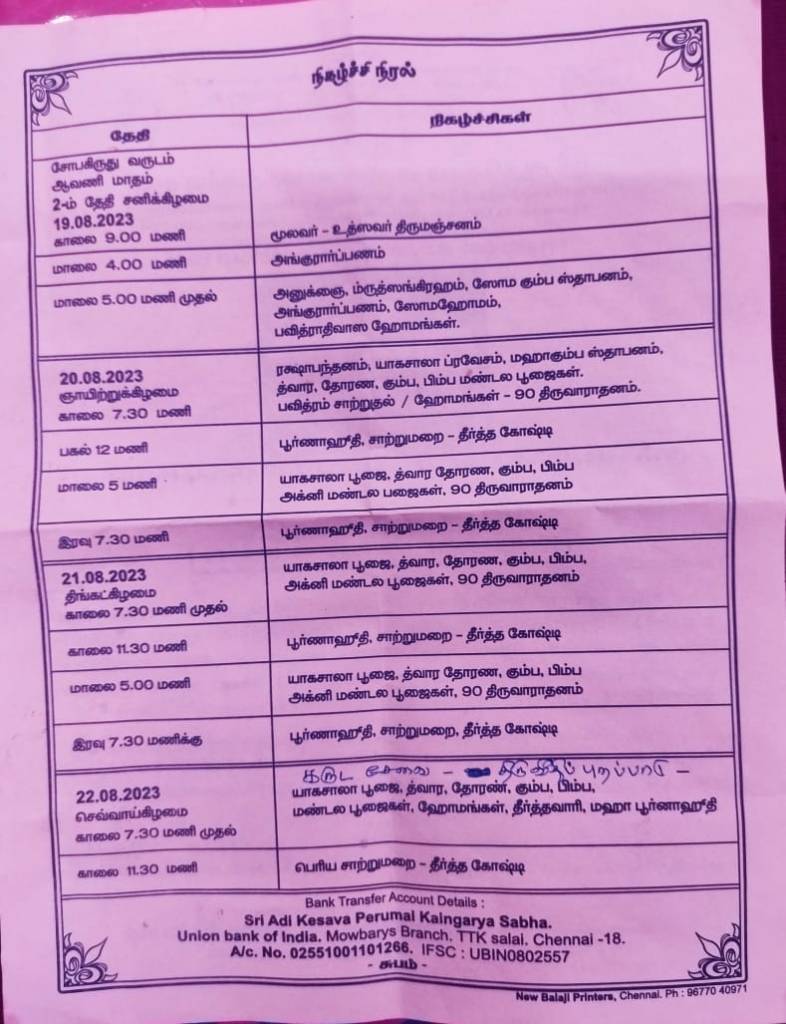 நிகழ்ச்சி நிரல்
தேதி
நிகழ்ச்சிகள்
சோபகிருது வருடம்
ஆவணி மாதம்
2-ம் தேதி சனிக்கிழமை
19.08.2023
காலை 9.00 மணி
மூலவர் - உத்ஸவர் திருமஞ்சனம்
மாலை 4.00 மணி
அங்குரார்ப்பணம்
மாலை 5.00 மணி முதல்
அனுக்ஞை, ம்ருத்ஸங்கிரஹம், ஸோம கும்ப ஸ்தாபனம்,
அங்குரார்ப்பணம், ஸோமஹோமம்,
பவித்ராதிவாஸ ஹோமங்கள்.
20.08.2023
ஞாயிற்றுக்கிழமை
காலை 7.30 மணி
ரக்ஷாபந்தனம், யாகசாலா ப்ரவேசம், மஹாகும்ப ஸ்தாபனம்,
த்வார, தோரண, கும்ப, பிம்ப மண்டல பூஜைகள்.
பவித்ரம் சாற்றுதல் / ஹோமங்கள் - 90 திருவாராதனம்.
பகல் 12 மணி
பூர்ணாஹூதி, சாற்றுமறை - தீர்த்த கோஷ்டி
மாலை 5 மணி
யாகசாலா பூஜை, த்வார தோரண, கும்ப, பிம்ப
அக்னி மண்டல பஜைகள், 90 திருவாராதனம்
இரவு 7.30 மணி
பூர்ணாஹூதி, சாற்றுமறை - தீர்த்த கோஷ்டி
21.08.2023
திங்கட்கிழமை
காலை 7.30 மணி முதல்
யாகசாலா பூஜை, த்வார, தோரண, கும்ப, பிம்ப,
அக்னி மண்டல பூஜைகள், 90 திருவாராதனம்
காலை 11.30 மணி
பூர்ணாஹூதி, சாற்றுமறை - தீர்த்த கோஷ்டி
மாலை 5.00 மணி
யாகசாலா பூஜை, த்வார தோரண, கும்ப, பிம்ப
அக்னி மண்டல பூஜைகள், 90 திருவாராதனம்
இரவு 7.30 மணிக்கு
பூர்ணாஹூதி, சாற்றுமறை, தீர்த்த கோஷ்டி
கருட சேவை - திருவீதிப் புறப்பாடு -
22.08.2023
செவ்வாய்கிழமை
காலை 7.30 மணி முதல்
யாகசாலா பூஜை, த்வார, தோரண, கும்ப, பிம்ப,
மண்டல பூஜைகள், ஹோமங்கள், தீர்த்தவாரி, மஹா பூர்னாஹூதி
காலை 11.30 மணி
பெரிய சாற்றுமறை - தீர்த்த கோஷ்டி
Bank Transfer Account Details :
Sri Adi Kesava Perumal Kaingarya Sabha.
Union bank of India. Mowbarys Branch, TTK salai, Chennai -18.
A/c. No. 02551001101266. IFSC : UBIN0802557
- சுபம் -
New Balaji Printers, Chennai. Ph : 96770 40971